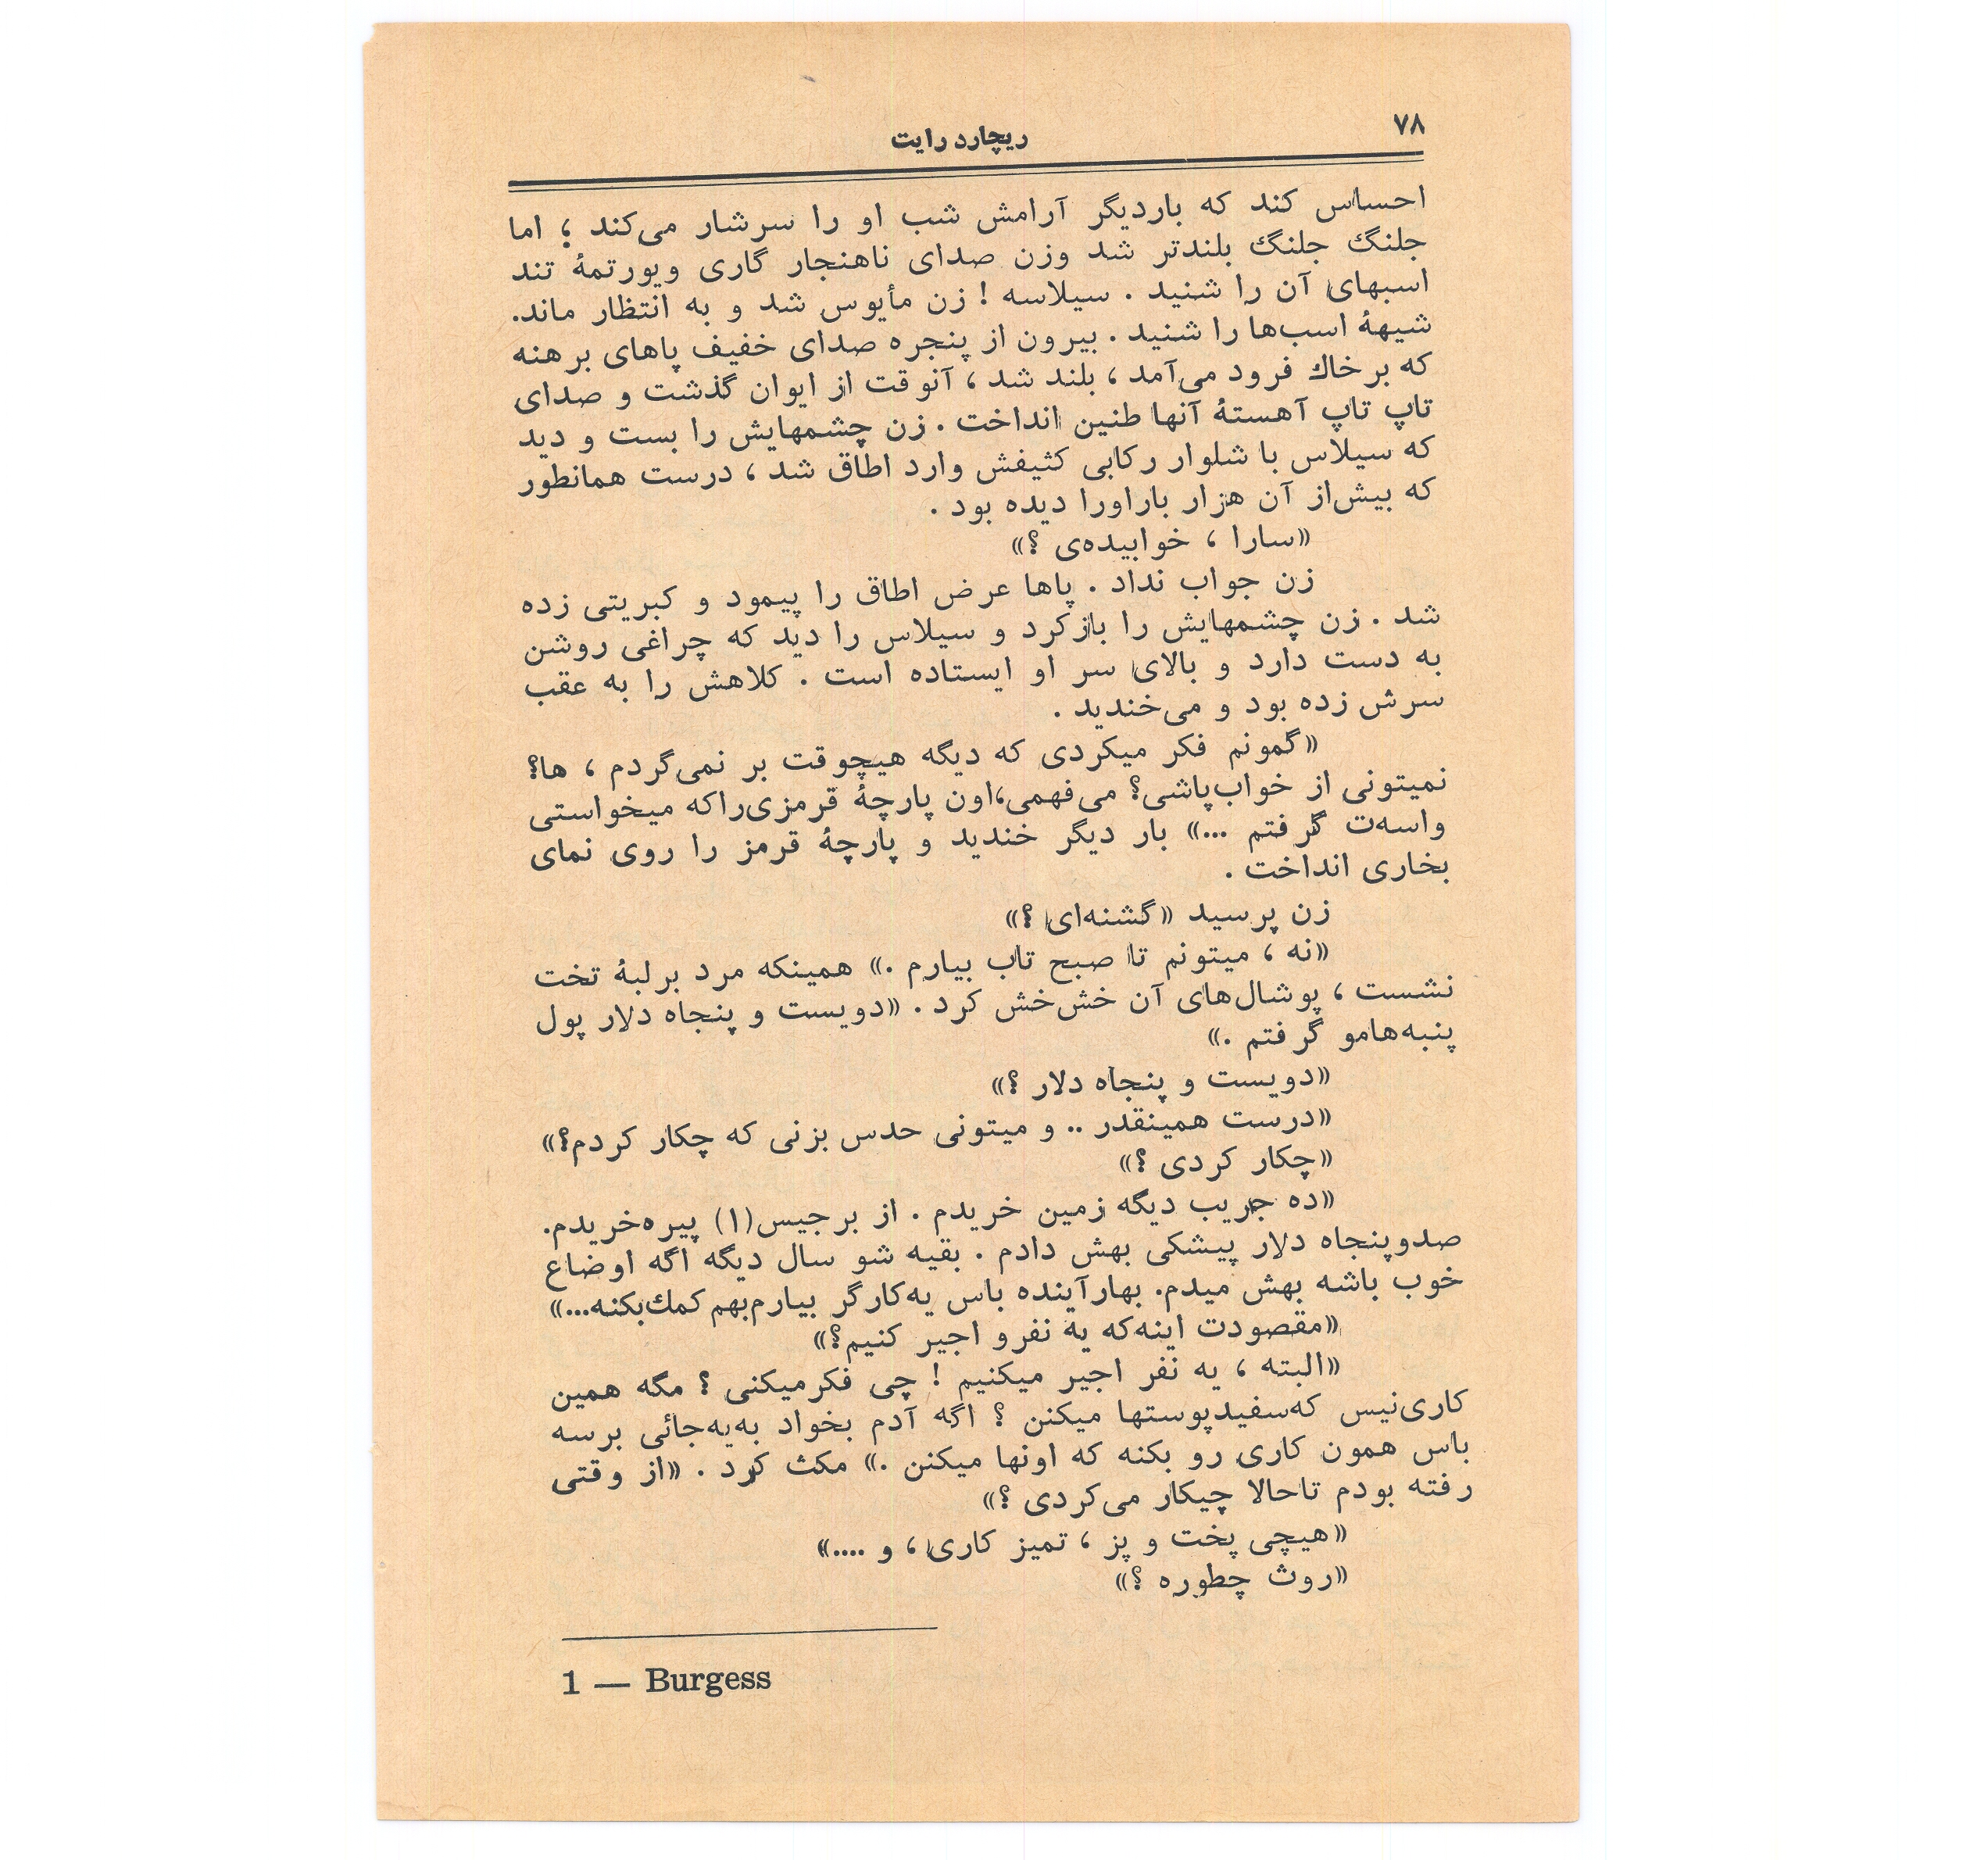 ۷۸
ریچارد رایت
احساس کند که باردیگر آرامش شب او را سرشار می‌کند ؛ اما
جلنگ جلنگ بلندتر شد وزن صدای ناهنجار گاری ویورتمهٔ تند
اسبهای آن را شنید . سیلاسه ! زن مأیوس شد و به انتظار ماند.
شیههٔ اسب‌ها را شنید . بیرون از پنجره صدای خفیف پاهای برهنه
که برخاك فرود می‌آمد ، بلند شد ، آنوقت از ایوان گذشت و صدای
تاپ تاپ آهستهٔ آنها طنین انداخت . زن چشمهایش را بست و دید
که سیلاس با شلوار رکابی کثیفش وارد اطاق شد ، درست همانطور
که بیش‌از آن هزار باراورا دیده بود .
«سارا ، خوابیده‌ی ؟»
زن جواب نداد . پاها عرض اطاق را پیمود و کبریتی زده
شد . زن چشمهایش را بازکرد و سیلاس را دید که چراغی روشن
به دست دارد و بالای سر او ایستاده است . کلاهش را به عقب
سرش زده بود و می‌خندید .
«گمونم فکر میکردی که دیگه هیچوقت بر نمی‌گردم ، ها؟
نمیتونی از خواب‌پاشی؟ می‌فهمی،اون پارچهٔ قرمزی‌راکه میخواستی
واسه‌ت گرفتم ...» بار دیگر خندید و پارچهٔ قرمز را روی نمای
بخاری انداخت .
زن پرسید «گشنه‌ای ؟»
«نه ، میتونم تا صبح تاب بیارم .» همینکه مرد برلبهٔ تخت
نشست ، پوشال‌های آن خش‌خش کرد . «دویست و پنجاه دلار پول
پنبه‌هامو گرفتم .»
«دویست و پنجاه دلار ؟»
«درست همینقدر .. و میتونی حدس بزنی که چکار کردم؟»
«چکار کردی ؟»
«ده جریب دیگه زمین خریدم . از برجیس(۱) پیره‌خریدم.
صدوپنجاه دلار پیشکی بهش دادم . بقیه شو سال دیگه اگه اوضاع
خوب باشه بهش میدم. بهارآینده باس یه‌کارگر بیارم‌بهم کمك‌بکنه...»
«مقصودت اینه‌که یه نفرو اجیر کنیم؟»
«البته ، یه نفر اجیر میکنیم ! چی فکرمیکنی ؟ مگه همین
کاری‌نیس که‌سفیدپوستها میکنن ؟ اگه آدم بخواد به‌یه‌جائی برسه
باس همون کاری رو بکنه که اونها میکنن .» مکث کرد . «از وقتی
رفته بودم تاحالا چیکار می‌کردی ؟»
«هیچی پخت و پز ، تمیز کاری ، و ....»
«روث چطوره ؟»
1 — Burgess